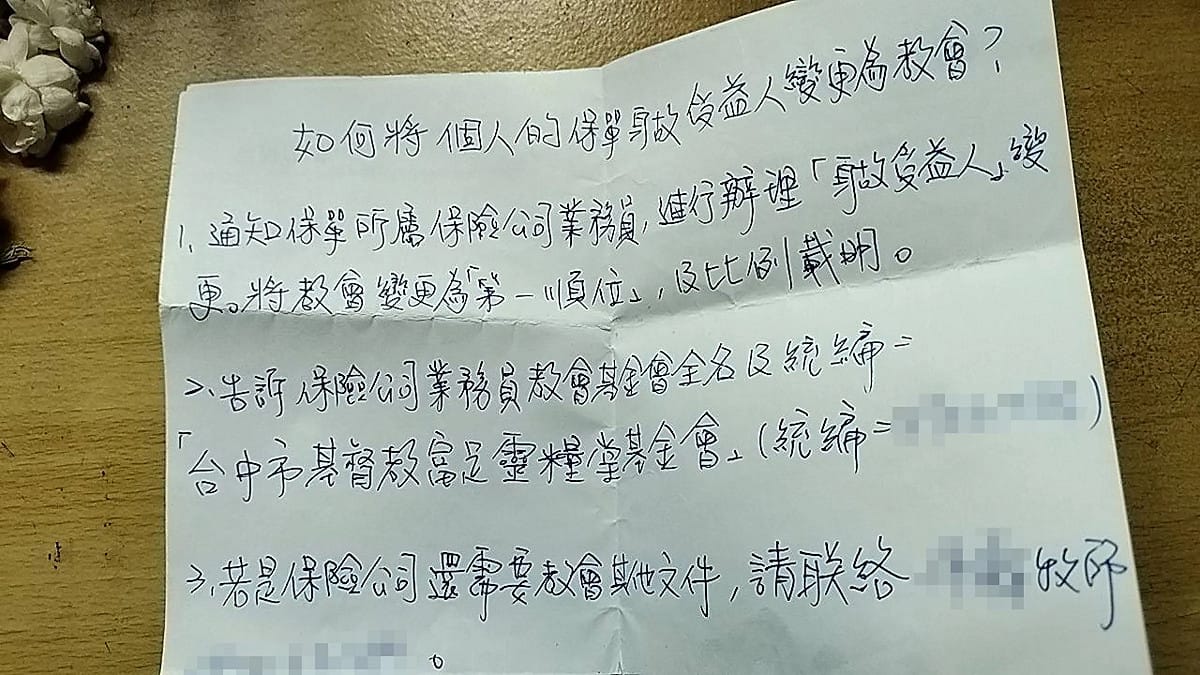 如何將個人的保單身故受益人變更為教會?
1. 通知保單所屬保險公司業務員,進行辦理「身故受益人」變
更。將教會變更為「第一順位」,及比例載明。
2. 告訴保險公司業務員教會基金會全名及統編=
「台中市基督教富足靈糧堂基金會」(統編=)
3. 若是保險公司還需要教會其他文件,請联絡 牧師
。